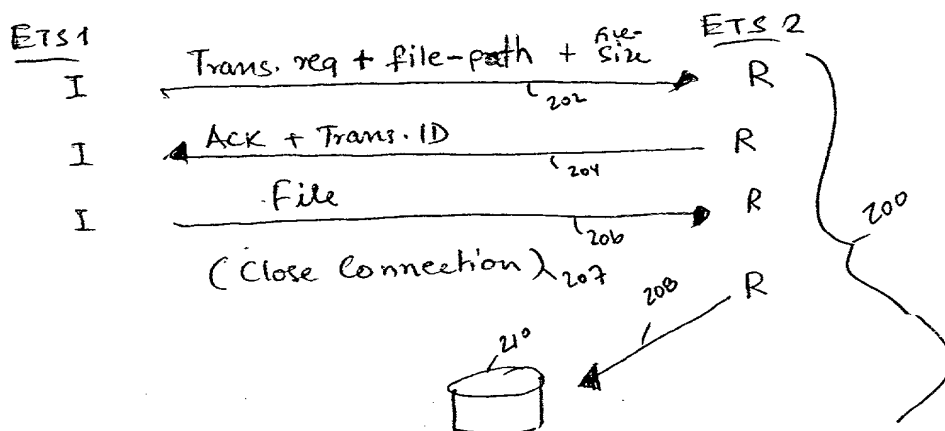 ETS1
ETS 2
Trans. req + file-path + file-size
I
R
202
Ack + Trans. ID
I
R
204
File
I
R
206
200
(Close Connection) 207
R
208
210